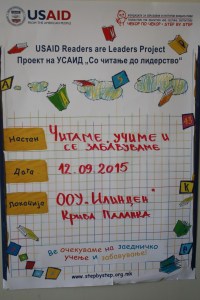 USAID
FROM THE AMERICAN PEOPLE
ЧЕКОР ПО ЧЕКОР - STEP BY STEP
USAID Readers are Leaders Project
Проект на УСАИД „Со читање до лидерство“
Настан
Читаме, учиме и
се забавуваме
Дата
12.09.2015
Локација
ООУ. „Илинден“
Крива Паланка
Ве очекуваме на заедничко
учење и забавување!
www.stepbystep.org.mk